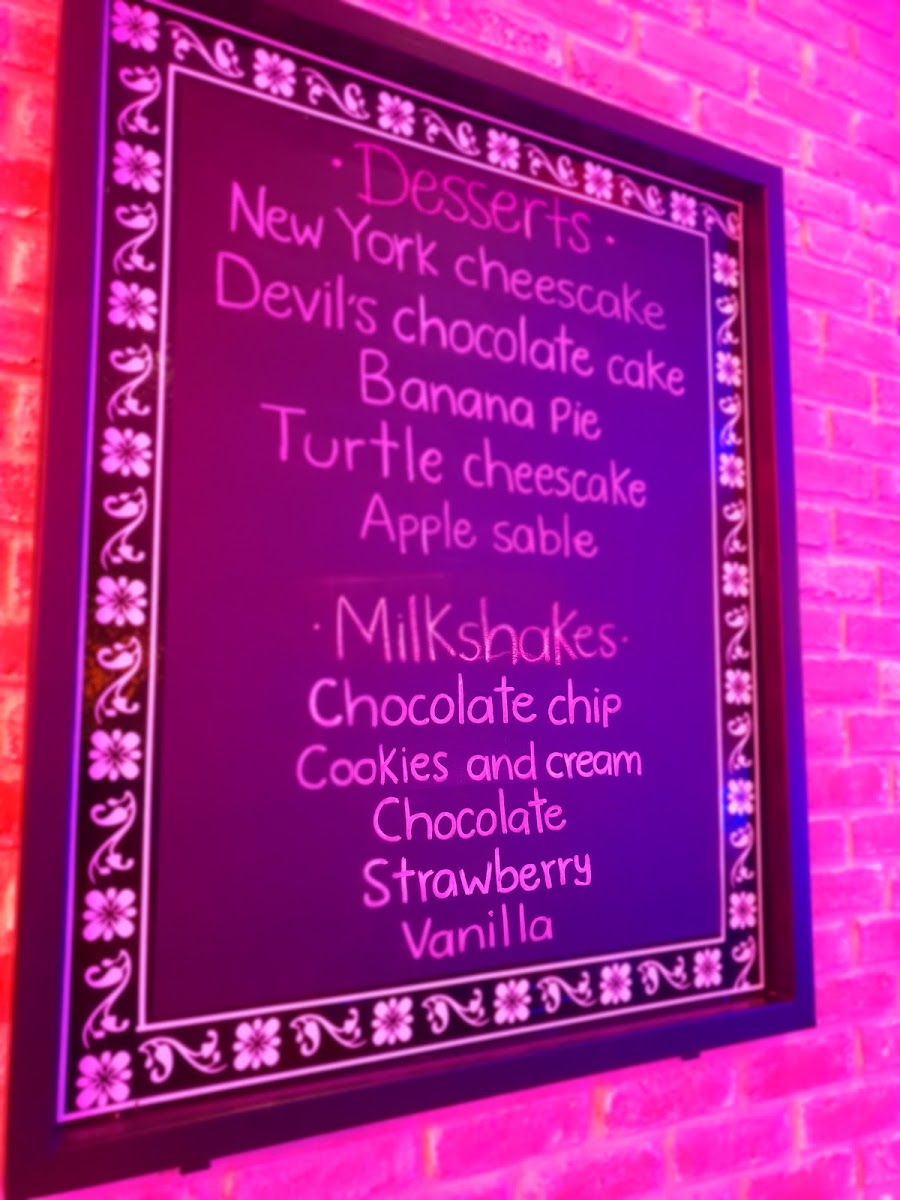 · Desserts ·
New York cheescake
Devil's chocolate cake
Banana Pie
Turtle cheescake
Apple sable
· Milkshakes ·
Chocolate chip
Cookies and cream
Chocolate
Strawberry
Vanilla